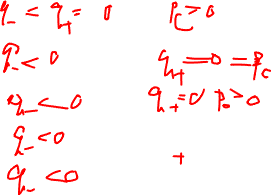 q₋ < q₊ = 0 P_c > 0
q₋ < 0 q₊ = 0 = P_c
q₋ < 0 q₊ = 0 P₀ > 0
q₋ < 0 +
q₋ < 0